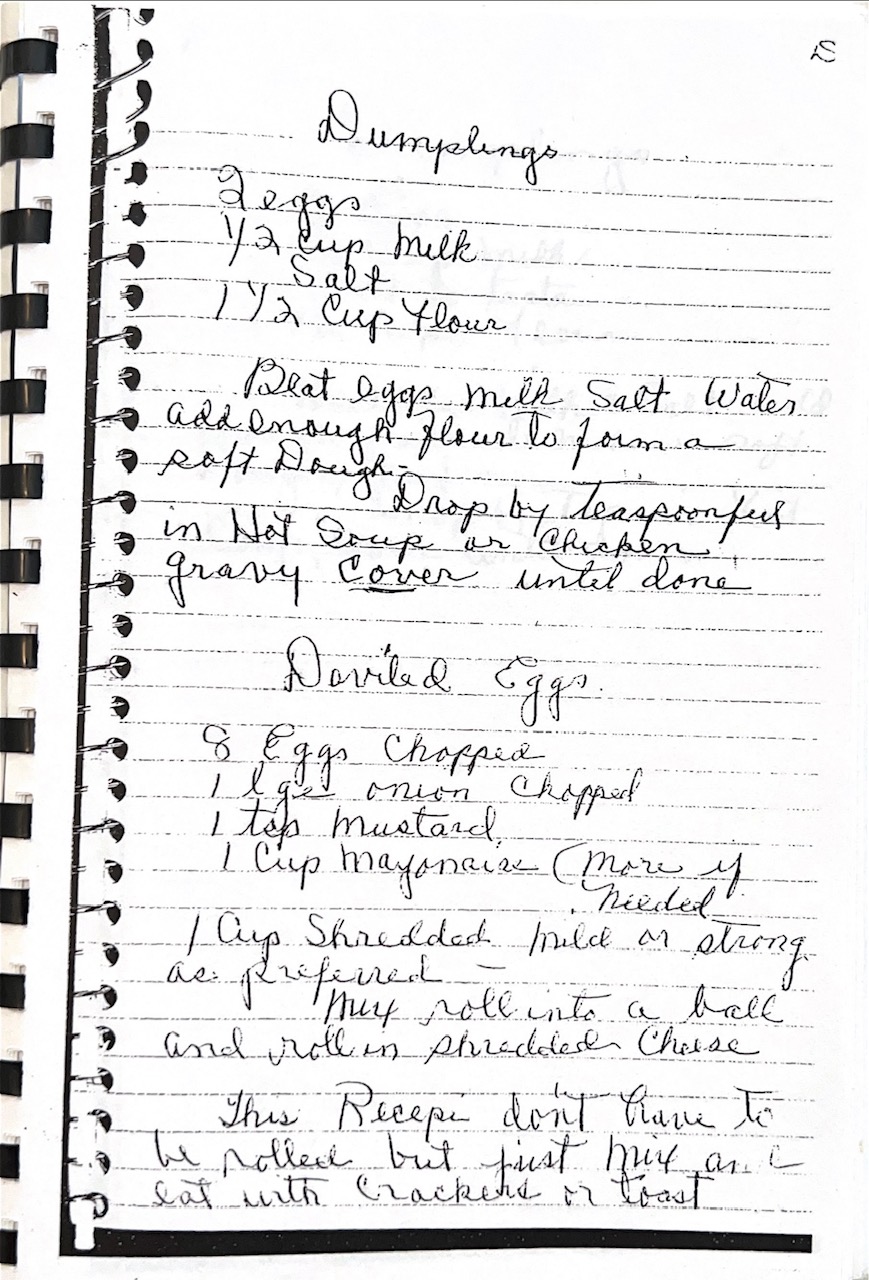 D
Dumplings
2 eggs
1/2 Cup Milk
Salt
1 1/2 Cup Flour
Beat eggs milk Salt Water
add enough flour to form a
soft Dough -
Drop by teaspoonful
in Hot Soup or Chicken
gravy Cover until done
Daviled Eggs.
8 Eggs Chopped
1 lge onion Chopped
1 tsp Mustard
1 Cup Mayonaise (More if
needed
1 Cup Shredded mild or strong
as preferred -
Mix roll into a ball
and roll in shredded Cheese
This Recepi don't have to
be rolled but just Mix and
eat with Crackers or toast